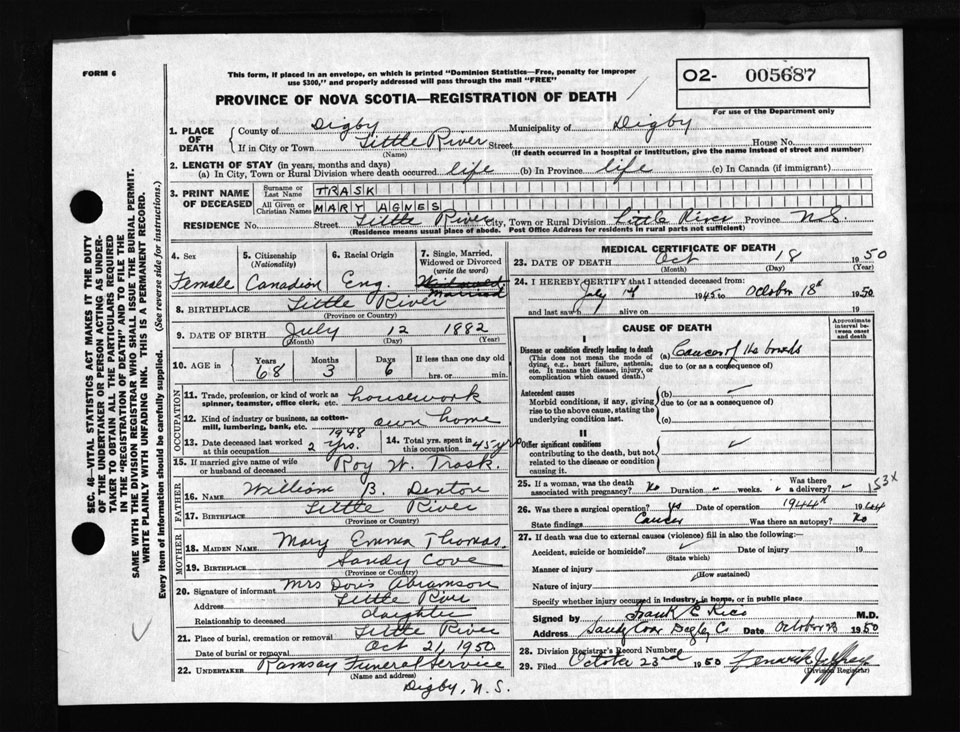 FORM 6
This form, if placed in an envelope, on which is printed "Dominion Statistics—Free, penalty for improper
use $300," and properly addressed will pass through the mail "FREE"
PROVINCE OF NOVA SCOTIA—REGISTRATION OF DEATH
O2- 005687
For use of the Department only
SEC. 46—VITAL STATISTICS ACT MAKES IT THE DUTY
OF THE UNDERTAKER OR PERSON ACTING AS UNDER-
TAKER TO OBTAIN ALL THE PARTICULARS REQUIRED
IN THE "REGISTRATION OF DEATH" AND TO FILE THE
SAME WITH THE DIVISION REGISTRAR WHO SHALL ISSUE THE BURIAL PERMIT.
WRITE PLAINLY WITH UNFADING INK. THIS IS A PERMANENT RECORD.
Every item of information should be carefully supplied. (See reverse side for instructions.)
1. PLACE OF DEATH
County of Digby Municipality of Digby
If in City or Town Little River Street House No.
(Name) (If death occurred in a hospital or institution, give the name instead of street and number)
2. LENGTH OF STAY (in years, months and days)
(a) In City, Town or Rural Division where death occurred life (b) In Province life (c) In Canada (if immigrant)
3. PRINT NAME OF DECEASED
Surname or Last Name TRASK
All Given or Christian Names MARY AGNES
RESIDENCE No. Street Little River City, Town or Rural Division Little River Province N.S.
(Residence means usual place of abode. Post Office Address for residents in rural parts not sufficient)
4. Sex Female
5. Citizenship (Nationality) Canadian
6. Racial Origin Eng.
7. Single, Married, Widowed or Divorced (write the word) Widowed Married
8. BIRTHPLACE Little River
(Province or Country)
9. DATE OF BIRTH July 12 1882
(Month) (Day) (Year)
10. AGE in Years Months Days If less than one day old
68 3 6 hrs. or min.
OCCUPATION
11. Trade, profession, or kind of work as
spinner, teamster, office clerk, etc. housework
12. Kind of industry or business, as cotton-
mill, lumbering, bank, etc. own home
13. Date deceased last worked at this occupation 1948 2 yrs.
14. Total yrs. spent in this occupation 45 yrs
15. If married give name of wife
or husband of deceased Roy W. Trask.
FATHER
16. NAME William B. Denton
17. BIRTHPLACE Little River
(Province or Country)
MOTHER
18. MAIDEN NAME Mary Emma Thomas.
19. BIRTHPLACE Sandy Cove
(Province or Country)
20. Signature of informant Mrs Doris Abramson
Address Little River
Relationship to deceased daughter
21. Place of burial, cremation or removal Little River
Date of burial or removal Oct 21, 1950
22. UNDERTAKER Ramsay Funeral Service
(Name and address)
Digby, N.S.
MEDICAL CERTIFICATE OF DEATH
23. DATE OF DEATH Oct 18 1950
(Month) (Day) (Year)
24. I HEREBY CERTIFY that I attended deceased from:
July 1st 1945 to October 18th 1950
and last saw h alive on 19
CAUSE OF DEATH
Approximate interval between onset and death
I
Disease or condition directly leading to death
(This does not mean the mode of
dying, e.g., heart failure, asthenia,
etc. It means the disease, injury, or
complication which caused death.)
(a) Cancer of the bowels
due to (or as a consequence of)
Antecedent causes
Morbid conditions, if any, giving
rise to the above cause, stating the
underlying condition last.
(b)
due to (or as a consequence of)
(c)
II
Other significant conditions
contributing to the death, but not
related to the disease or condition
causing it.
25. If a woman, was the death
associated with pregnancy? No Duration weeks. Was there a delivery?
153X
26. Was there a surgical operation? yes Date of operation 1944
State findings Cancer Was there an autopsy? No
27. If death was due to external causes (violence) fill in also the following:—
Accident, suicide or homicide? Date of injury 19
(State which)
Manner of injury
(How sustained)
Nature of injury
Specify whether injury occurred in industry, in home, or in public place
Signed by Frank E Rice M.D.
Address Sandy Cove Digby Co Date October 1950
28. Division Registrar's Record Number
29. Filed October 23rd 1950 Fenwick Jeffrey
(Division Registrar)